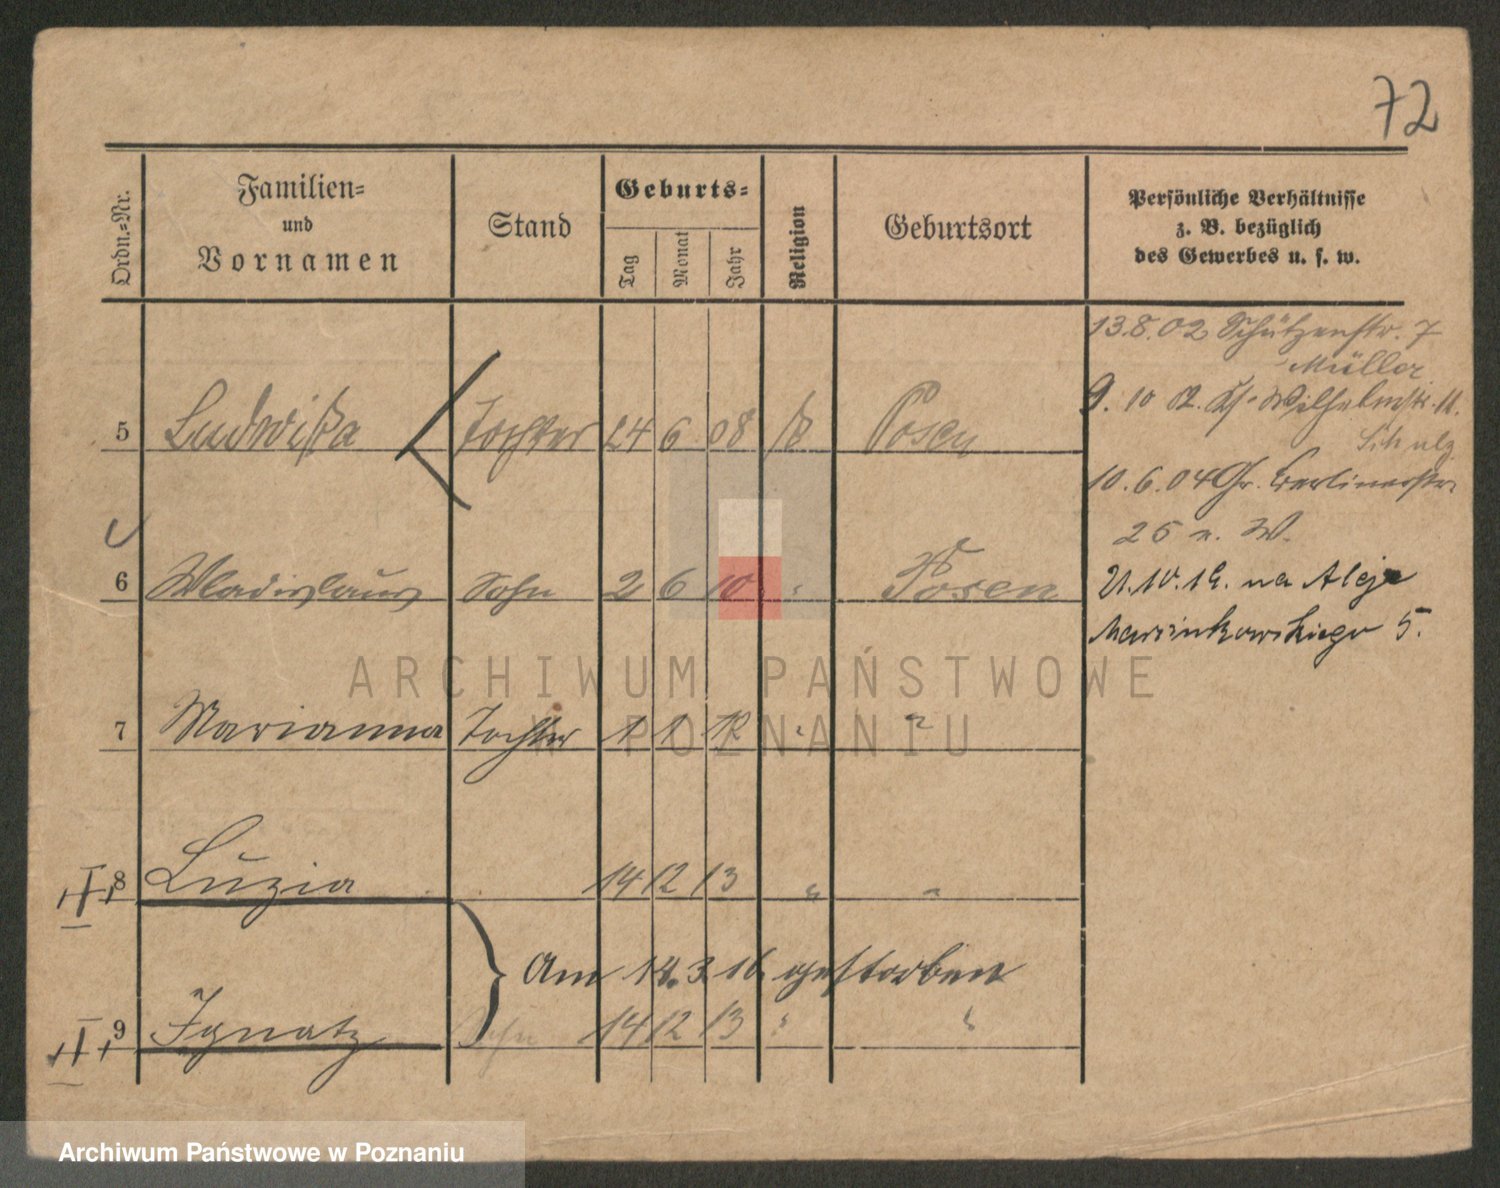 72
Ordn.-Nr.
Familien-
und
Vornamen
Stand
Geburts-
Tag
Monat
Jahr
Religion
Geburtsort
Persönliche Verhältnisse
z. B. bezüglich
des Gewerbes u. s. w.
13.8.02 Schützenstr. 7
Müller
5 Ludwika Tochter 24 6 08 Posen
9. 10 02. Wilhelmstr.
Schulz
10.6.04 Gr. Berlinerstr.
25 n. W.
6 Wladislaus Sohn 2 6 10 Posen
21.10.19. na Aleje
Marcinkowskiego 5.
ARCHIWUM PAŃSTWOWE
W POZNANIU
7 Marianna Tochter 1 1 12 "
8 Luzia 14 12 13 " "
Am 14.3.16. gestorben
9 Ignatz Sohn 14 12 13 " "
Archiwum Państwowe w Poznaniu